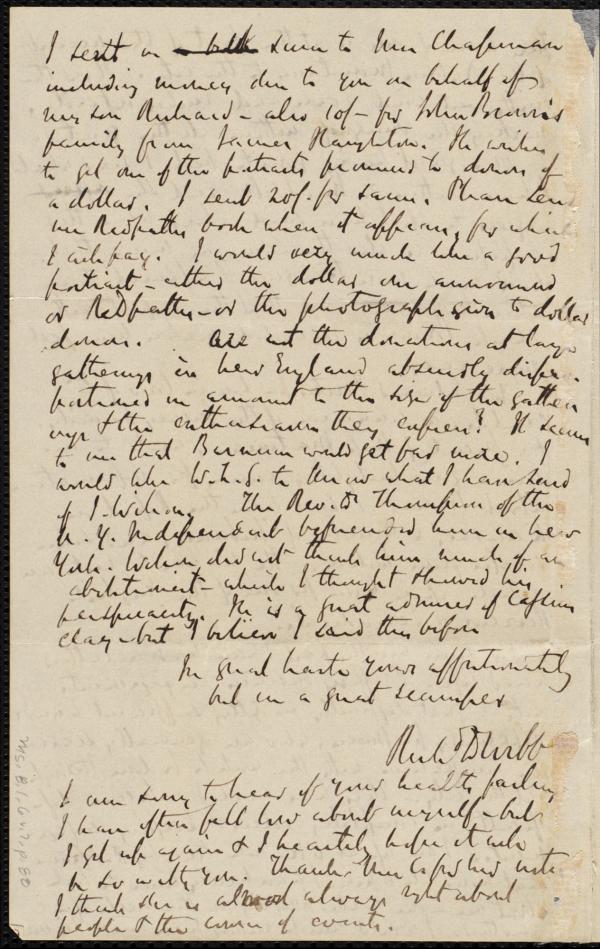 I sent on a bill sum to Mrs Chapman
including money due to you on behalf of
my son Richard – also 10/- for John Brown's
family from James Haughton. He wishes
to get one of the portraits promised to donors of
a dollar. I sent 20/- for same. Please send
me Redpath's book when it appears, for which
I will pay. I would very much like a good
portrait – either the dollar one announced
or Redpath's – or the photograph given to dollar
donors. Are not the donations at large
gatherings in New England absurdly dispro-
portioned in amount to the size of the gather-
ings & the enthusiasm they express? It seems
to me that Barnum would get far more. I
would like W.L.G. to know what I have said
of I. Wilson. The Rev. Dr Thompson of the
N.Y. Independent befriended him in New
York. Wilson did not think him much of an
abolitionist – which I thought showed his
perspicacity. He is a great admirer of Cassius
Clay – but I believe I said this before
In great haste yours affectionately
but in a great scamper
Richd D Webb
I am sorry to hear of your health failing
I have often felt low about myself – but
I get up again & I heartily hope it will
be so with you. Thank Mrs for her note
I think she is almost always right about
people & the course of events.
Ms. B.1.6 v.7, p.80